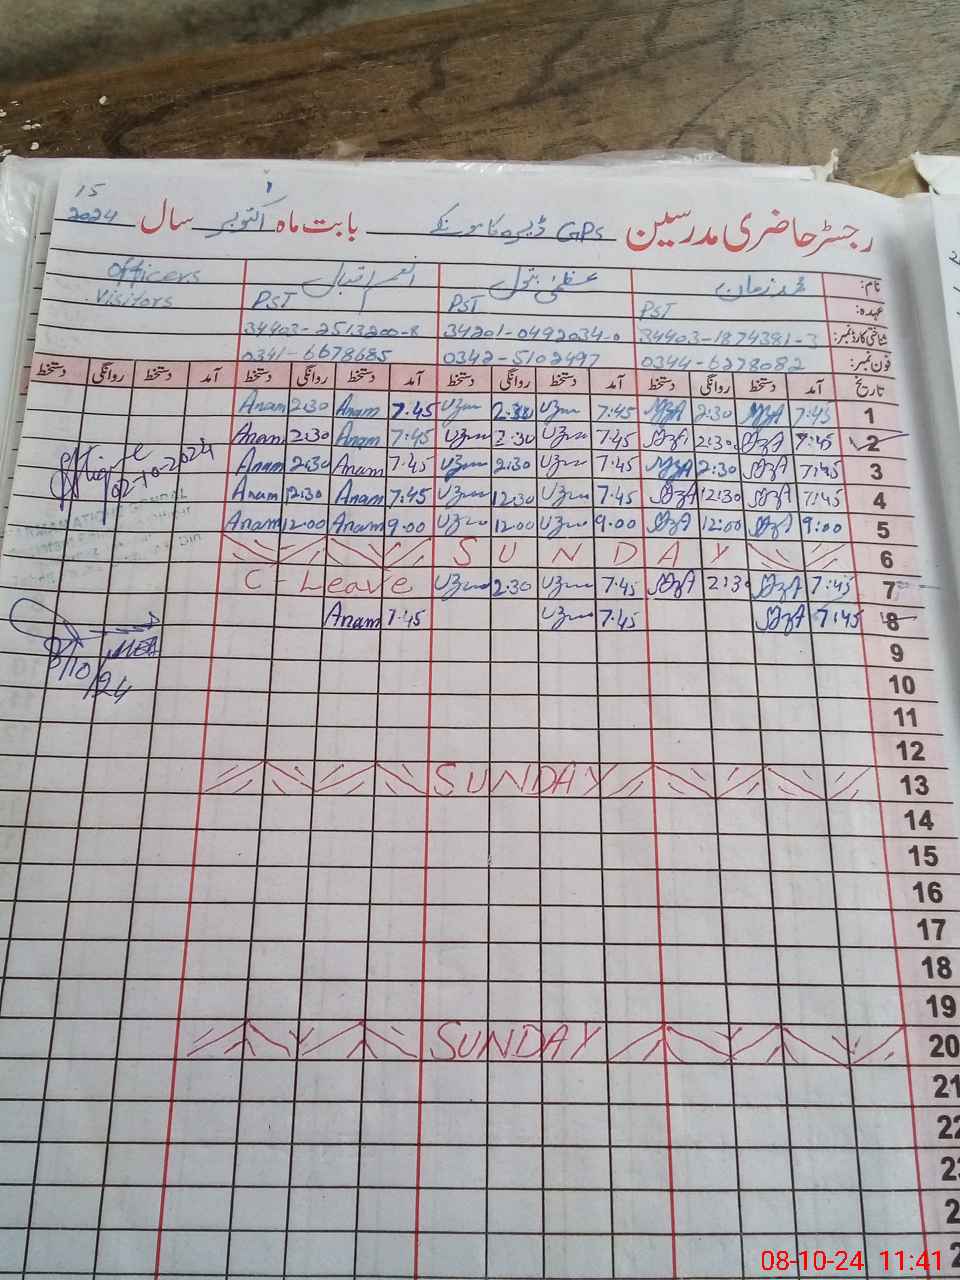 15
رجسٹر حاضری مدرسین GPS ڈیرہ کا مونکے بابت ماہ اکتوبر سال 2024
نام: محمد زمان عظمیٰ بتول انعم اقبال Officers
عہدہ: PST PST PST Visitors
شناختی کارڈ نمبر: 34403-1874381-3 34201-0492034-0 34403-2513200-8
فون نمبر: 0344-6278082 0342-5102497 0341-6678685
تاریخ آمد دستخط روانگی دستخط آمد دستخط روانگی دستخط آمد دستخط روانگی دستخط آمد دستخط روانگی دستخط
1 7:45 2:30 7:45 2:30 7.45 Anam 2:30 Anam
2 7:45 2:30 7:45 2:30 7:45 Anam 2:30 Anam
02-10-2024
3 7:45 2:30 7:45 2:30 7:45 Anam 2:30 Anam
4 7:45 12:30 7:45 12:30 7:45 Anam 12:30 Anam
5 9:00 12:00 9:00 12:00 9:00 Anam 12:00 Anam
6 SUNDAY
7 7:45 2:30 7:45 2:30 C-Leave
8 7:45 7:45 7:45 Anam
8/10/24 MEA
9
10
11
12
13 SUNDAY
14
15
16
17
18
19
20 SUNDAY
21
22
08-10-24 11:41